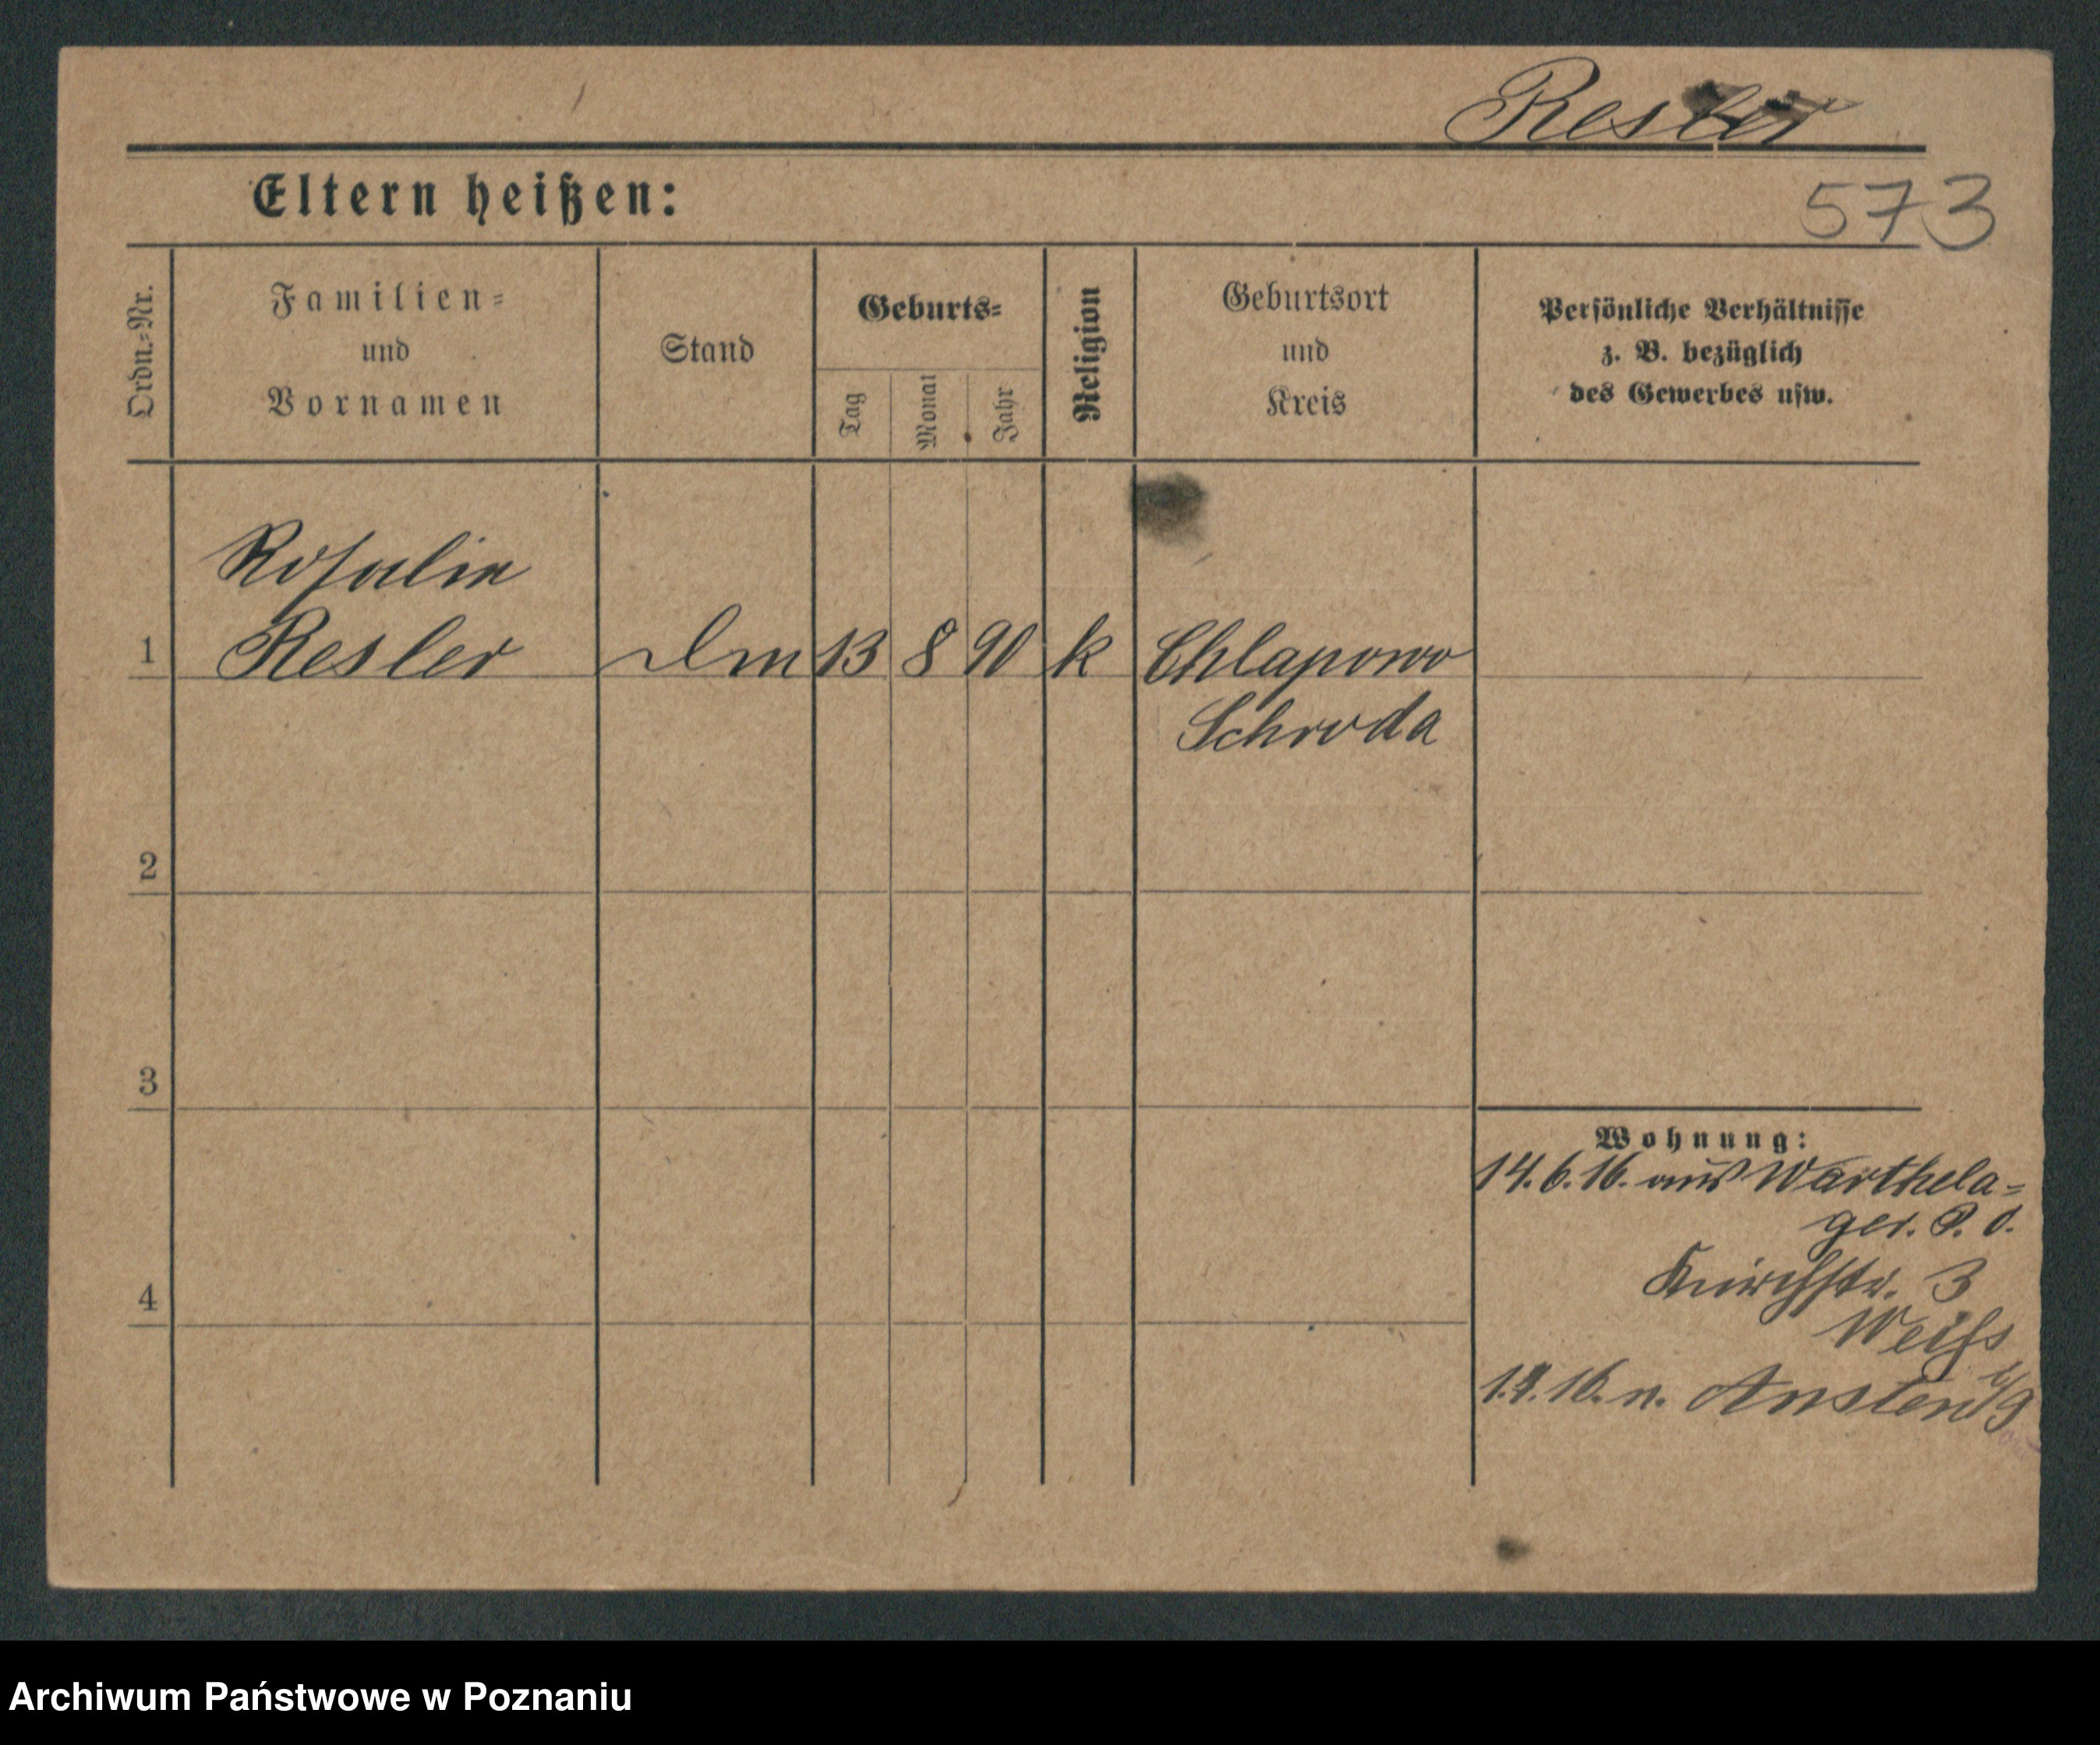 Resler
Eltern heißen:
573
Ordn.=Nr.
Familien=
und
Vornamen
Stand
Geburts=
Tag
Monat
Jahr
Religion
Geburtsort
und
Kreis
Persönliche Verhältnisse
z. B. bezüglich
des Gewerbes usw.
Rosalie
1 Resler 13 8 90 k Chlapowo
Schroda
2
3
4
Wohnung:
14.6.16. aus Warthela=
ger.
Kirchstr. 3
Weiß
16. n.
Archiwum Państwowe w Poznaniu